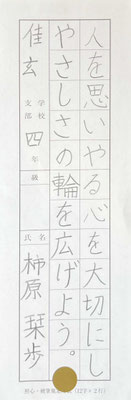 人を思いやる心を大切にし
やさしさの輪を広げよう。
佳玄
支部
学校
四年
級
氏名
柿原栞歩